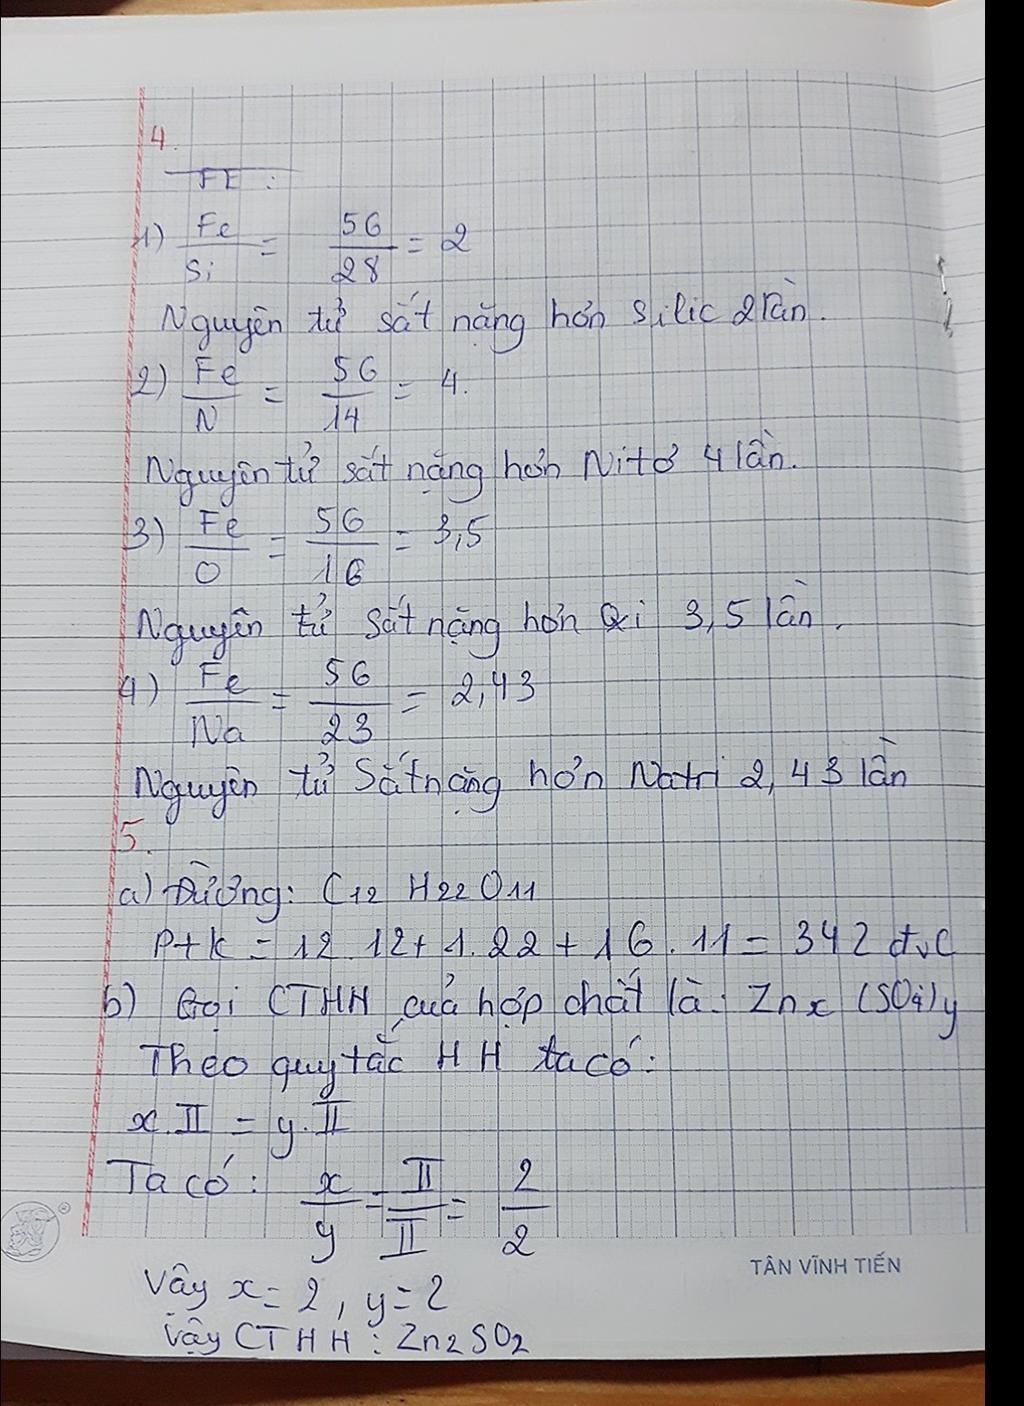 4.
FE :
1) Fe/Si = 56/28 = 2
Nguyên tử sắt nặng hơn Silic 2 lần.
2) Fe/N = 56/14 = 4.
Nguyên tử sắt nặng hơn Nitơ 4 lần.
3) Fe/O = 56/16 = 3,5
Nguyên tử sắt nặng hơn Oxi 3,5 lần.
4) Fe/Na = 56/23 = 2,43
Nguyên tử Sắt nặng hơn Natri 2,43 lần
5.
a) Đường: C12 H22 O11
PTK = 12.12+1.22+16.11= 342 đvC
b) Gọi CTHH của hợp chất là: Znx (SO4)y
Theo quy tắc HH ta có:
x.II = y.II
Ta có: x/y = II/II = 2/2
Vậy x=2, y=2
Vậy CTHH: Zn2SO2
TÂN VĨNH TIẾN